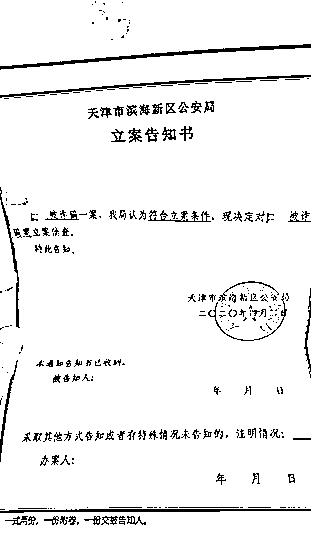 天津市滨海新区公安局
立案告知书
被诈骗一案，我局认为符合立案条件，现决定对 被诈
骗案立案侦查。
特此告知。
天津市滨海新区公安局
二〇二〇年 月 日
本通知告知书已收到。
被告知人：
年 月 日
采取其他方式告知或者有特殊情况未告知的，注明情况：
办案人：
年 月 日
一式两份，一份附卷，一份交被告知人。